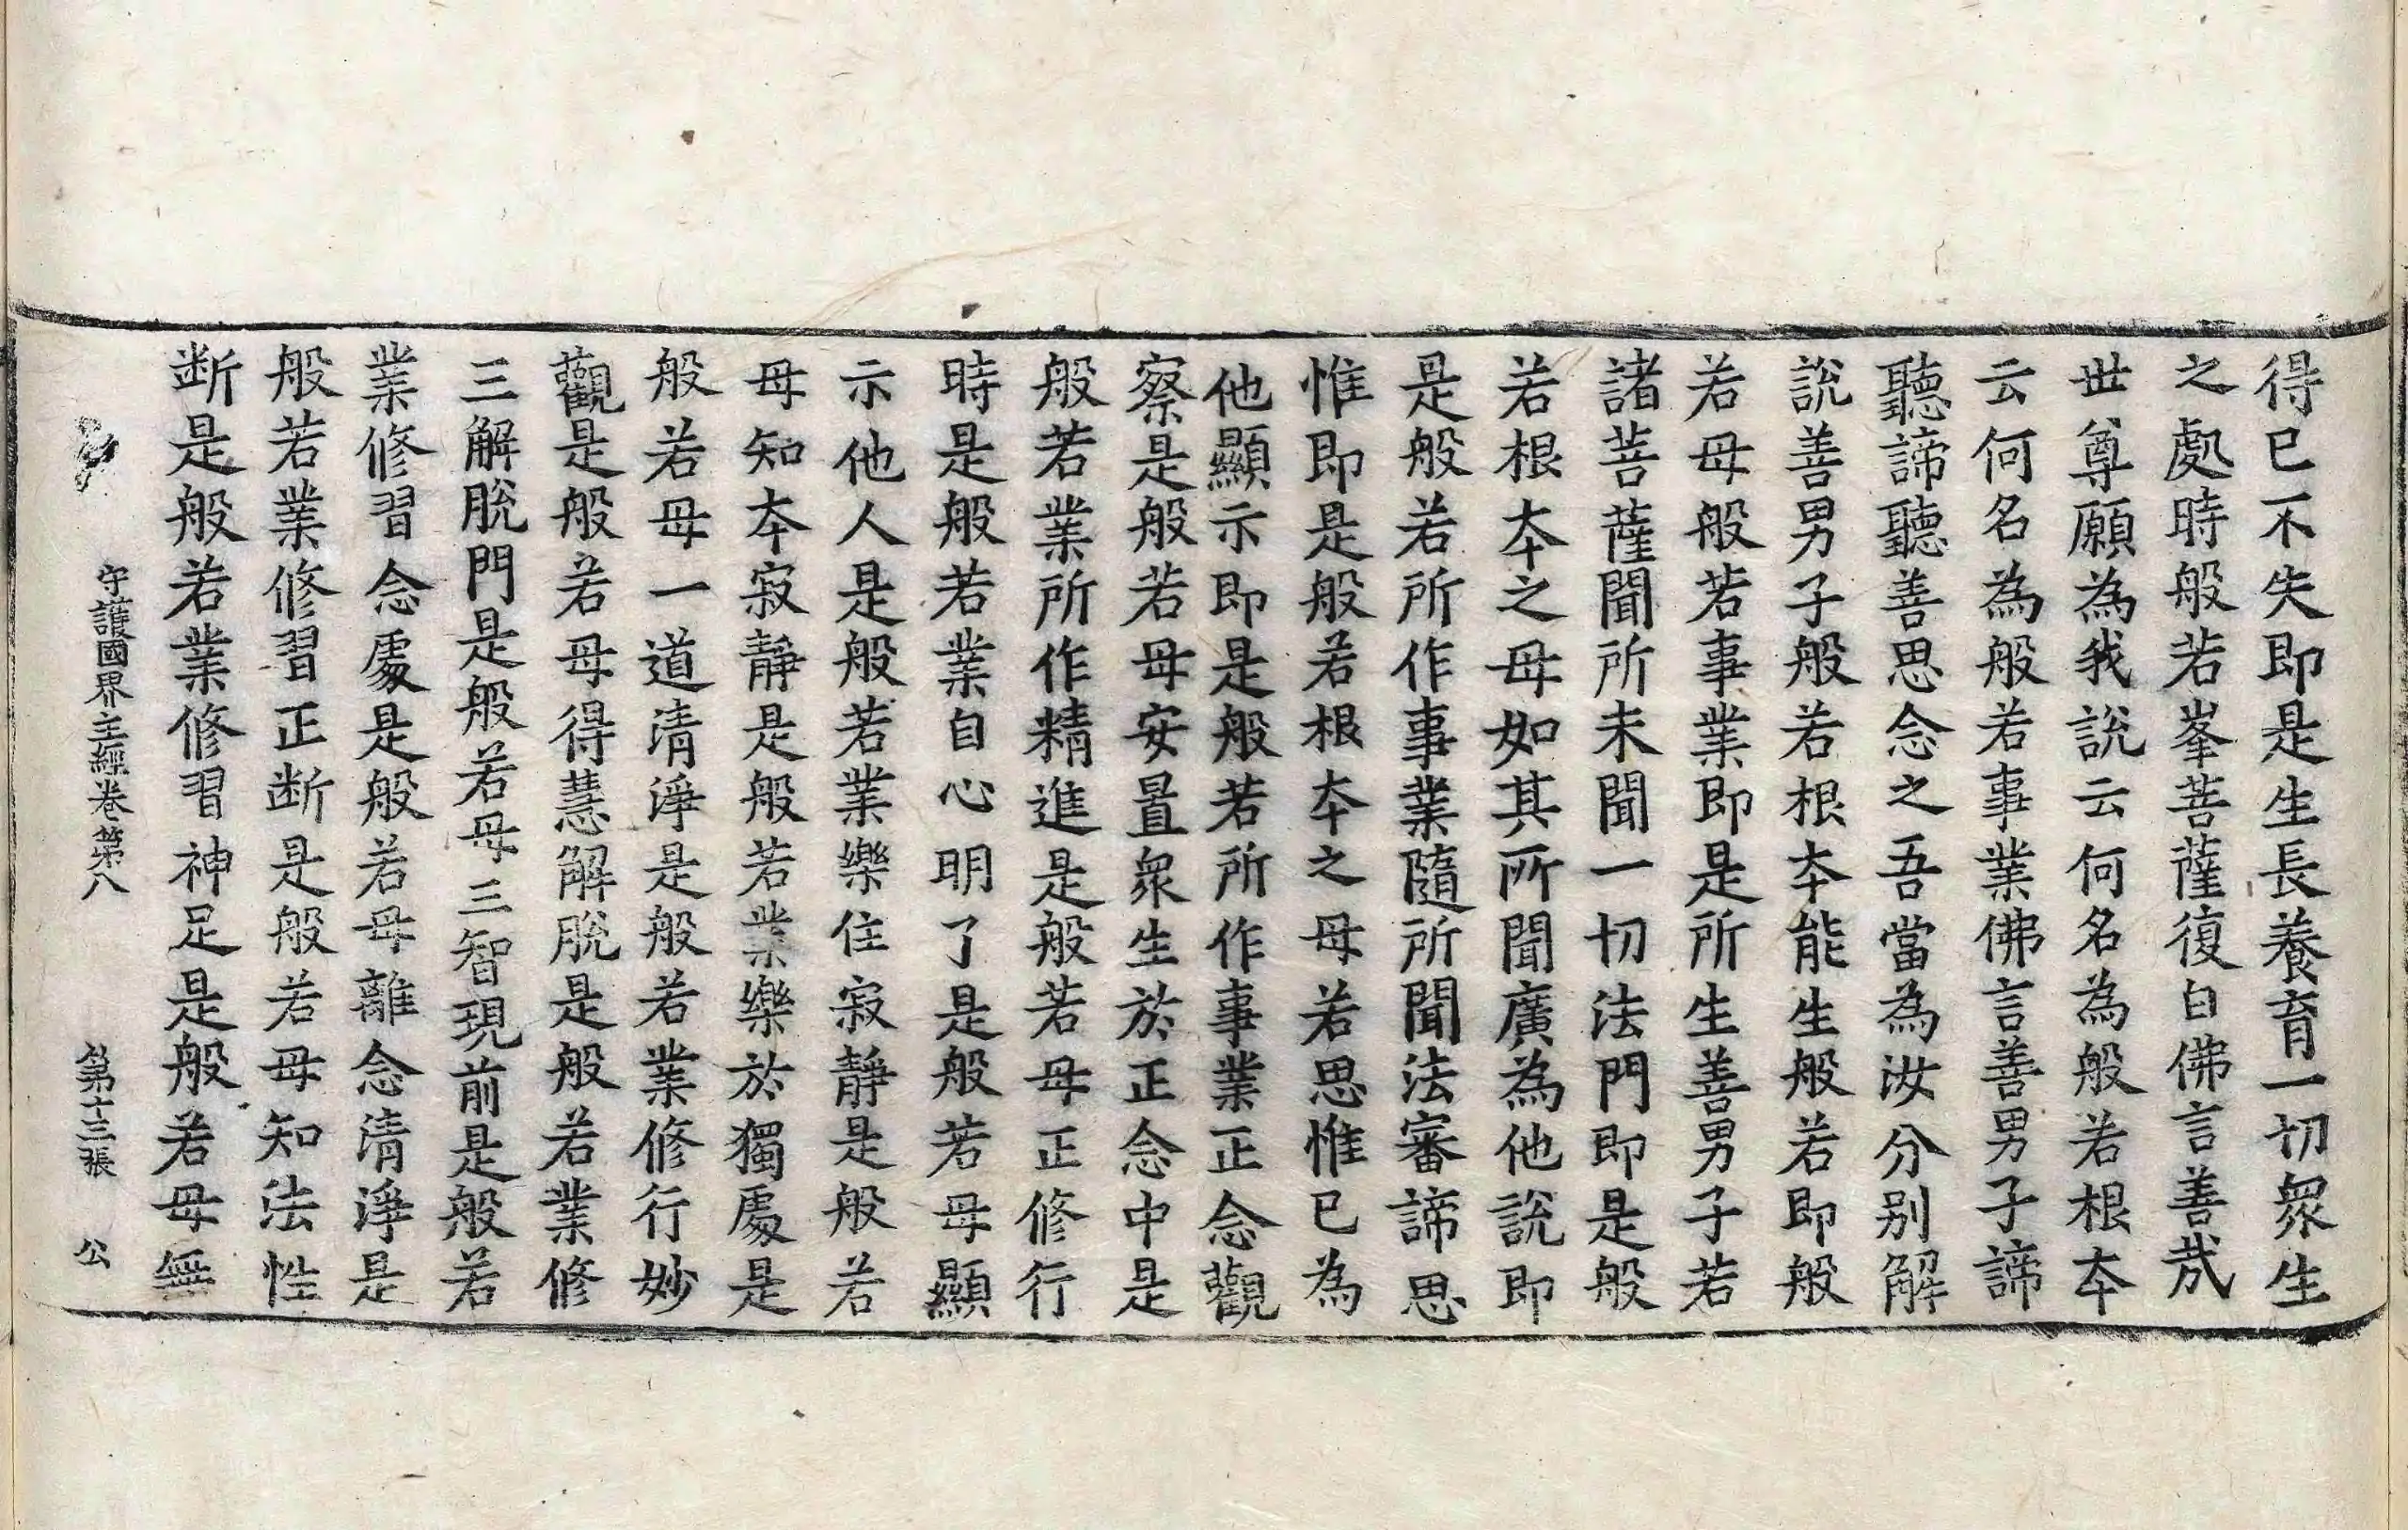 得已不失即是生長養育一切衆生
之處時般若峯菩薩復白佛言善哉
世尊願為我說云何名為般若根本
云何名為般若事業佛言善男子諦
聽諦聽善思念之吾當為汝分別解
說善男子般若根本能生般若即般
若母般若事業即是所生善男子若
諸菩薩聞所未聞一切法門即是般
若根本之母如其所聞廣為他說即
是般若所作事業隨所聞法審諦思
惟即是般若根本之母若思惟已為
他顯示即是般若所作事業正念觀
察是般若母安置衆生於正念中是
般若業所作精進是般若母正修行
時是般若業自心明了是般若母顯
示他人是般若業樂住寂靜是般若
母知本寂靜是般若業樂於獨處是
般若母一道清淨是般若業修行妙
觀是般若母得慧解脫是般若業修
三解脫門是般若母三智現前是般若
業修習念處是般若母離念清淨是
般若業修習正断是般若母知法性
断是般若業修習神足是般若母無
守護國界主經卷第八 第十三張 公